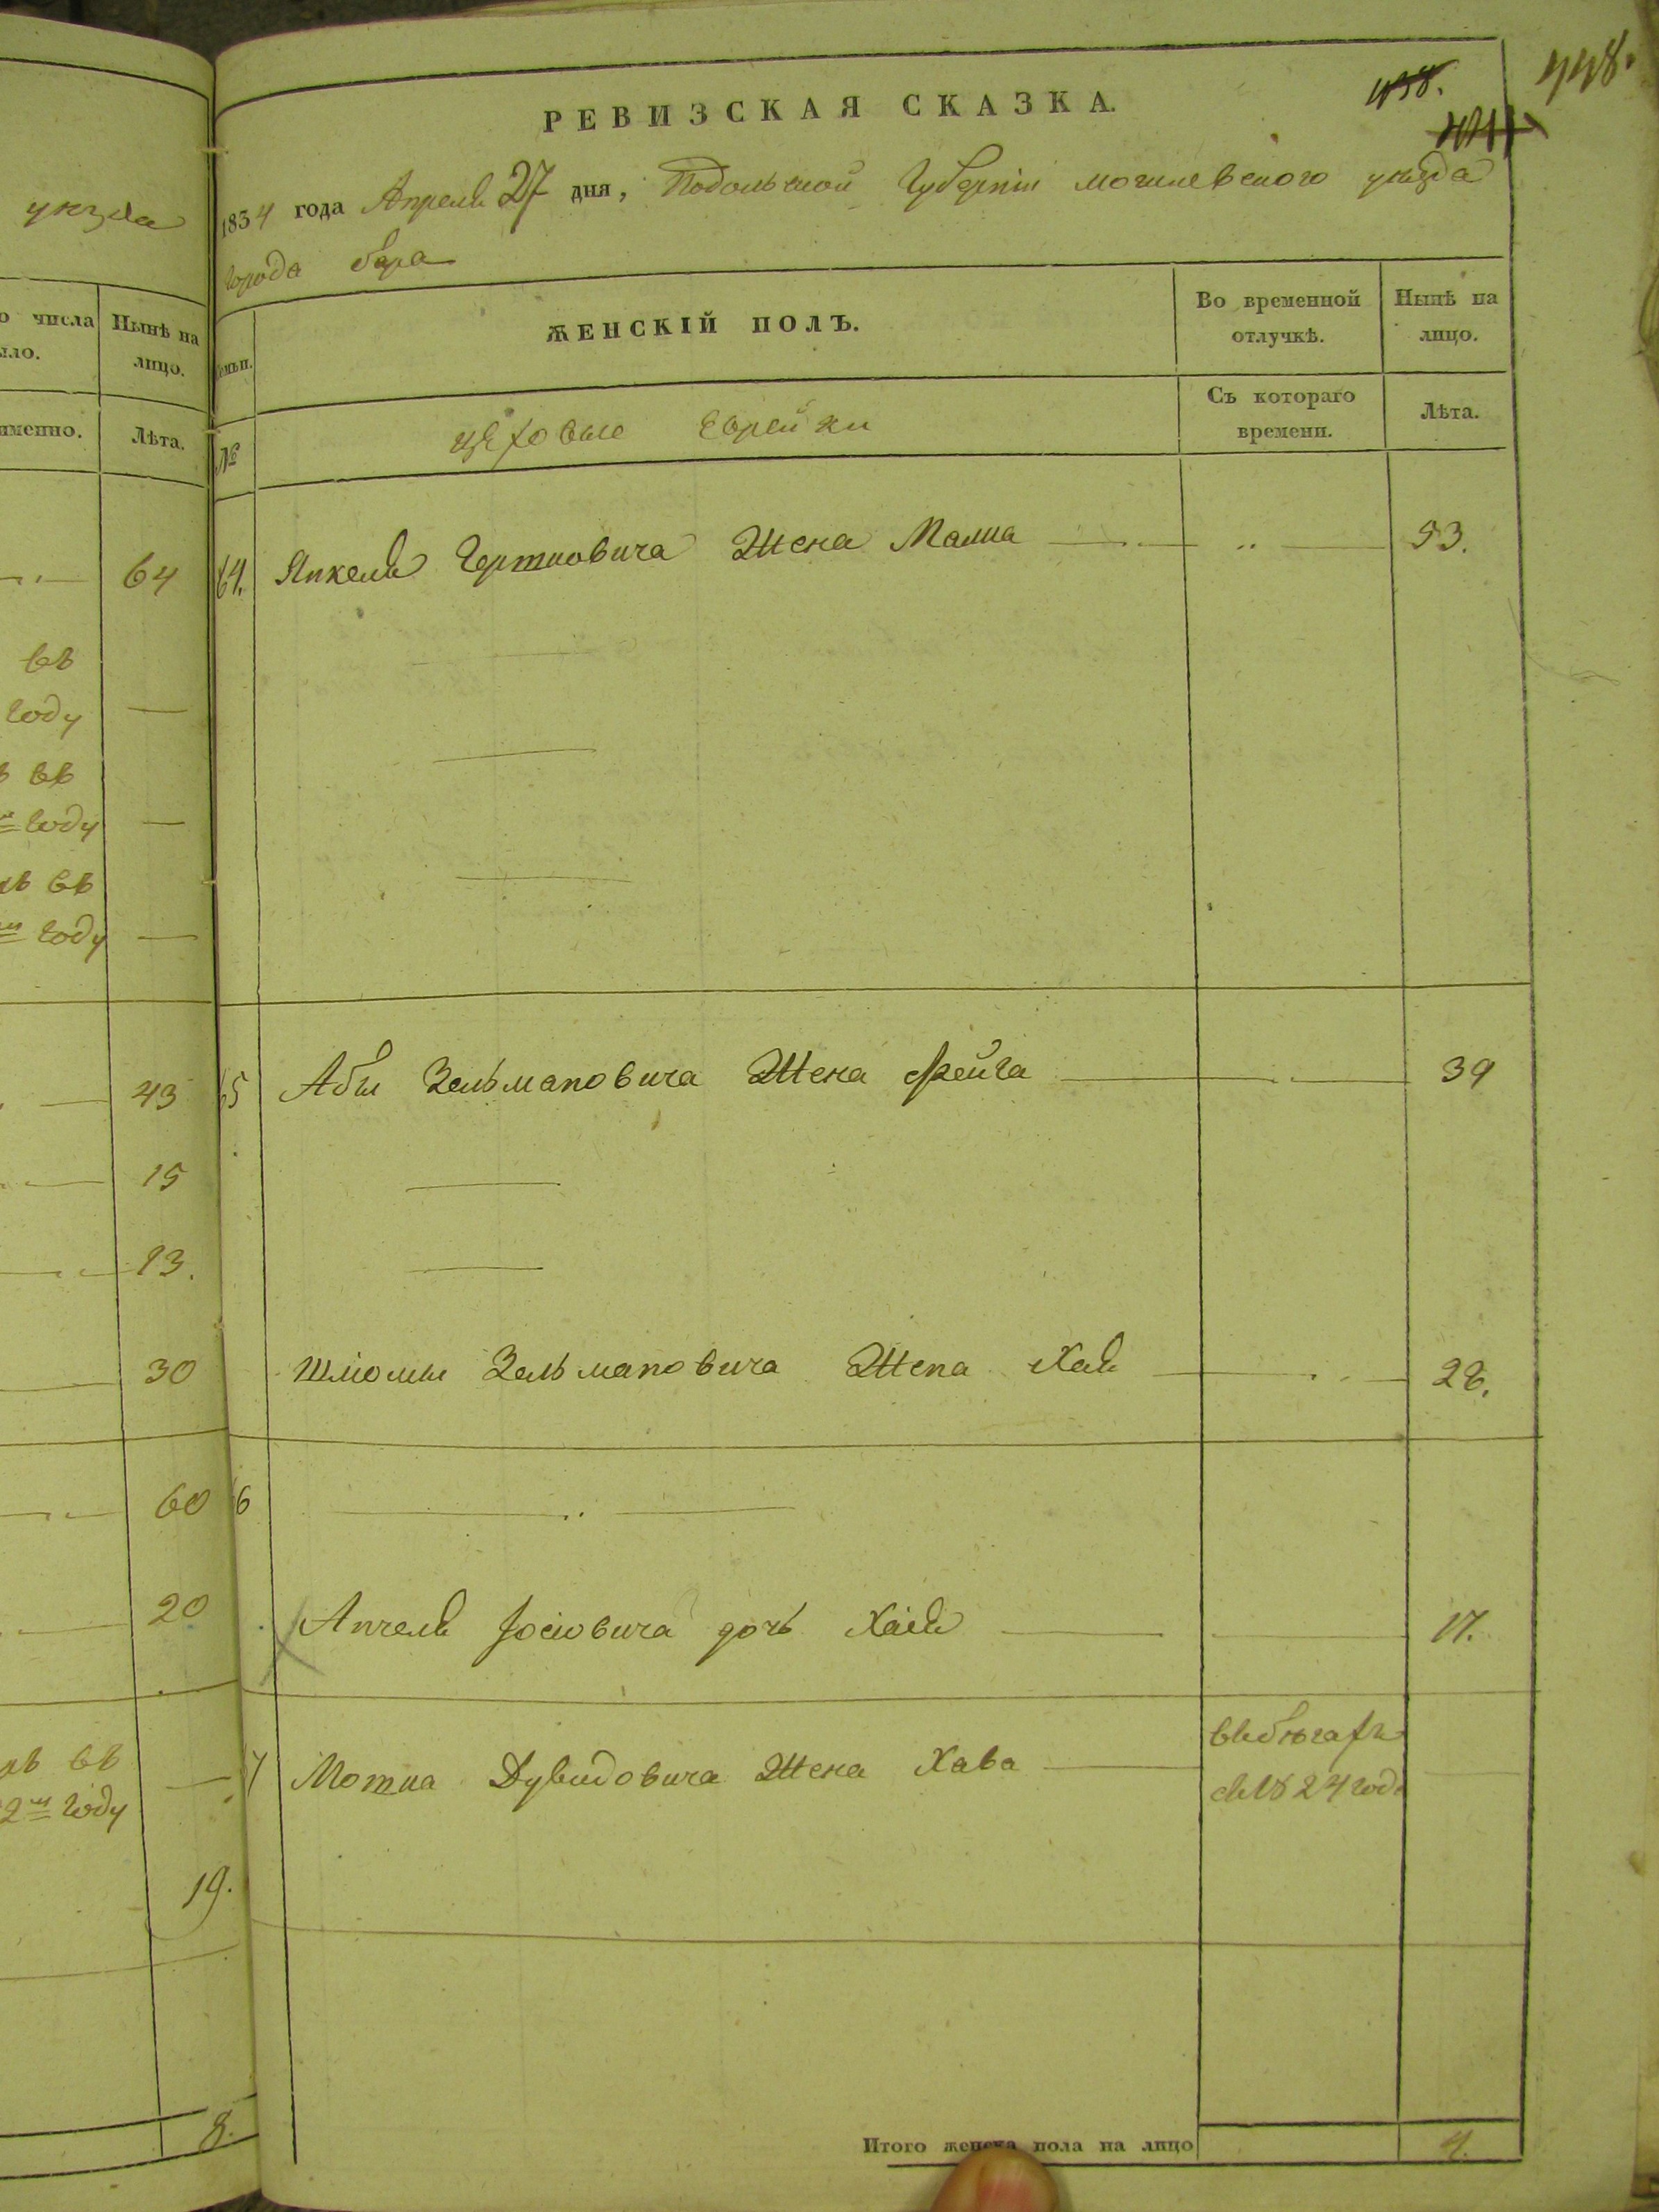 уѣзда
о числа
ыло.
Нынѣ на
лицо.
именно.
Лѣта.
64
въ
году
въ
году
въ
году
43
15
13.
30
60
20
въ
2мъ году
19.
8.
438.
448.
РЕВИЗСКАЯ СКАЗКА.
1834 года Апреля 27 дня, Подольской Губерніи могилевского уѣзда
города бара
Семьи.
ЖЕНСКІЙ ПОЛЪ.
Во временной
отлучкѣ.
Нынѣ на
лицо.
№
цеховые еврейки
Съ котораго
времени.
Лѣта.
64. Янкеля Гертковича Жена Малка 53.
65 Абы Зельмановича Жена Фейга 39
Шліомы Зельмановича Жена Хая 28.
66
Анчеля Іосіовича дочь Хаія 17.
67 Мотка Дувидовича Жена Хава въ бѣгахъ
съ 1824 года
Итого женска пола на лицо 4.